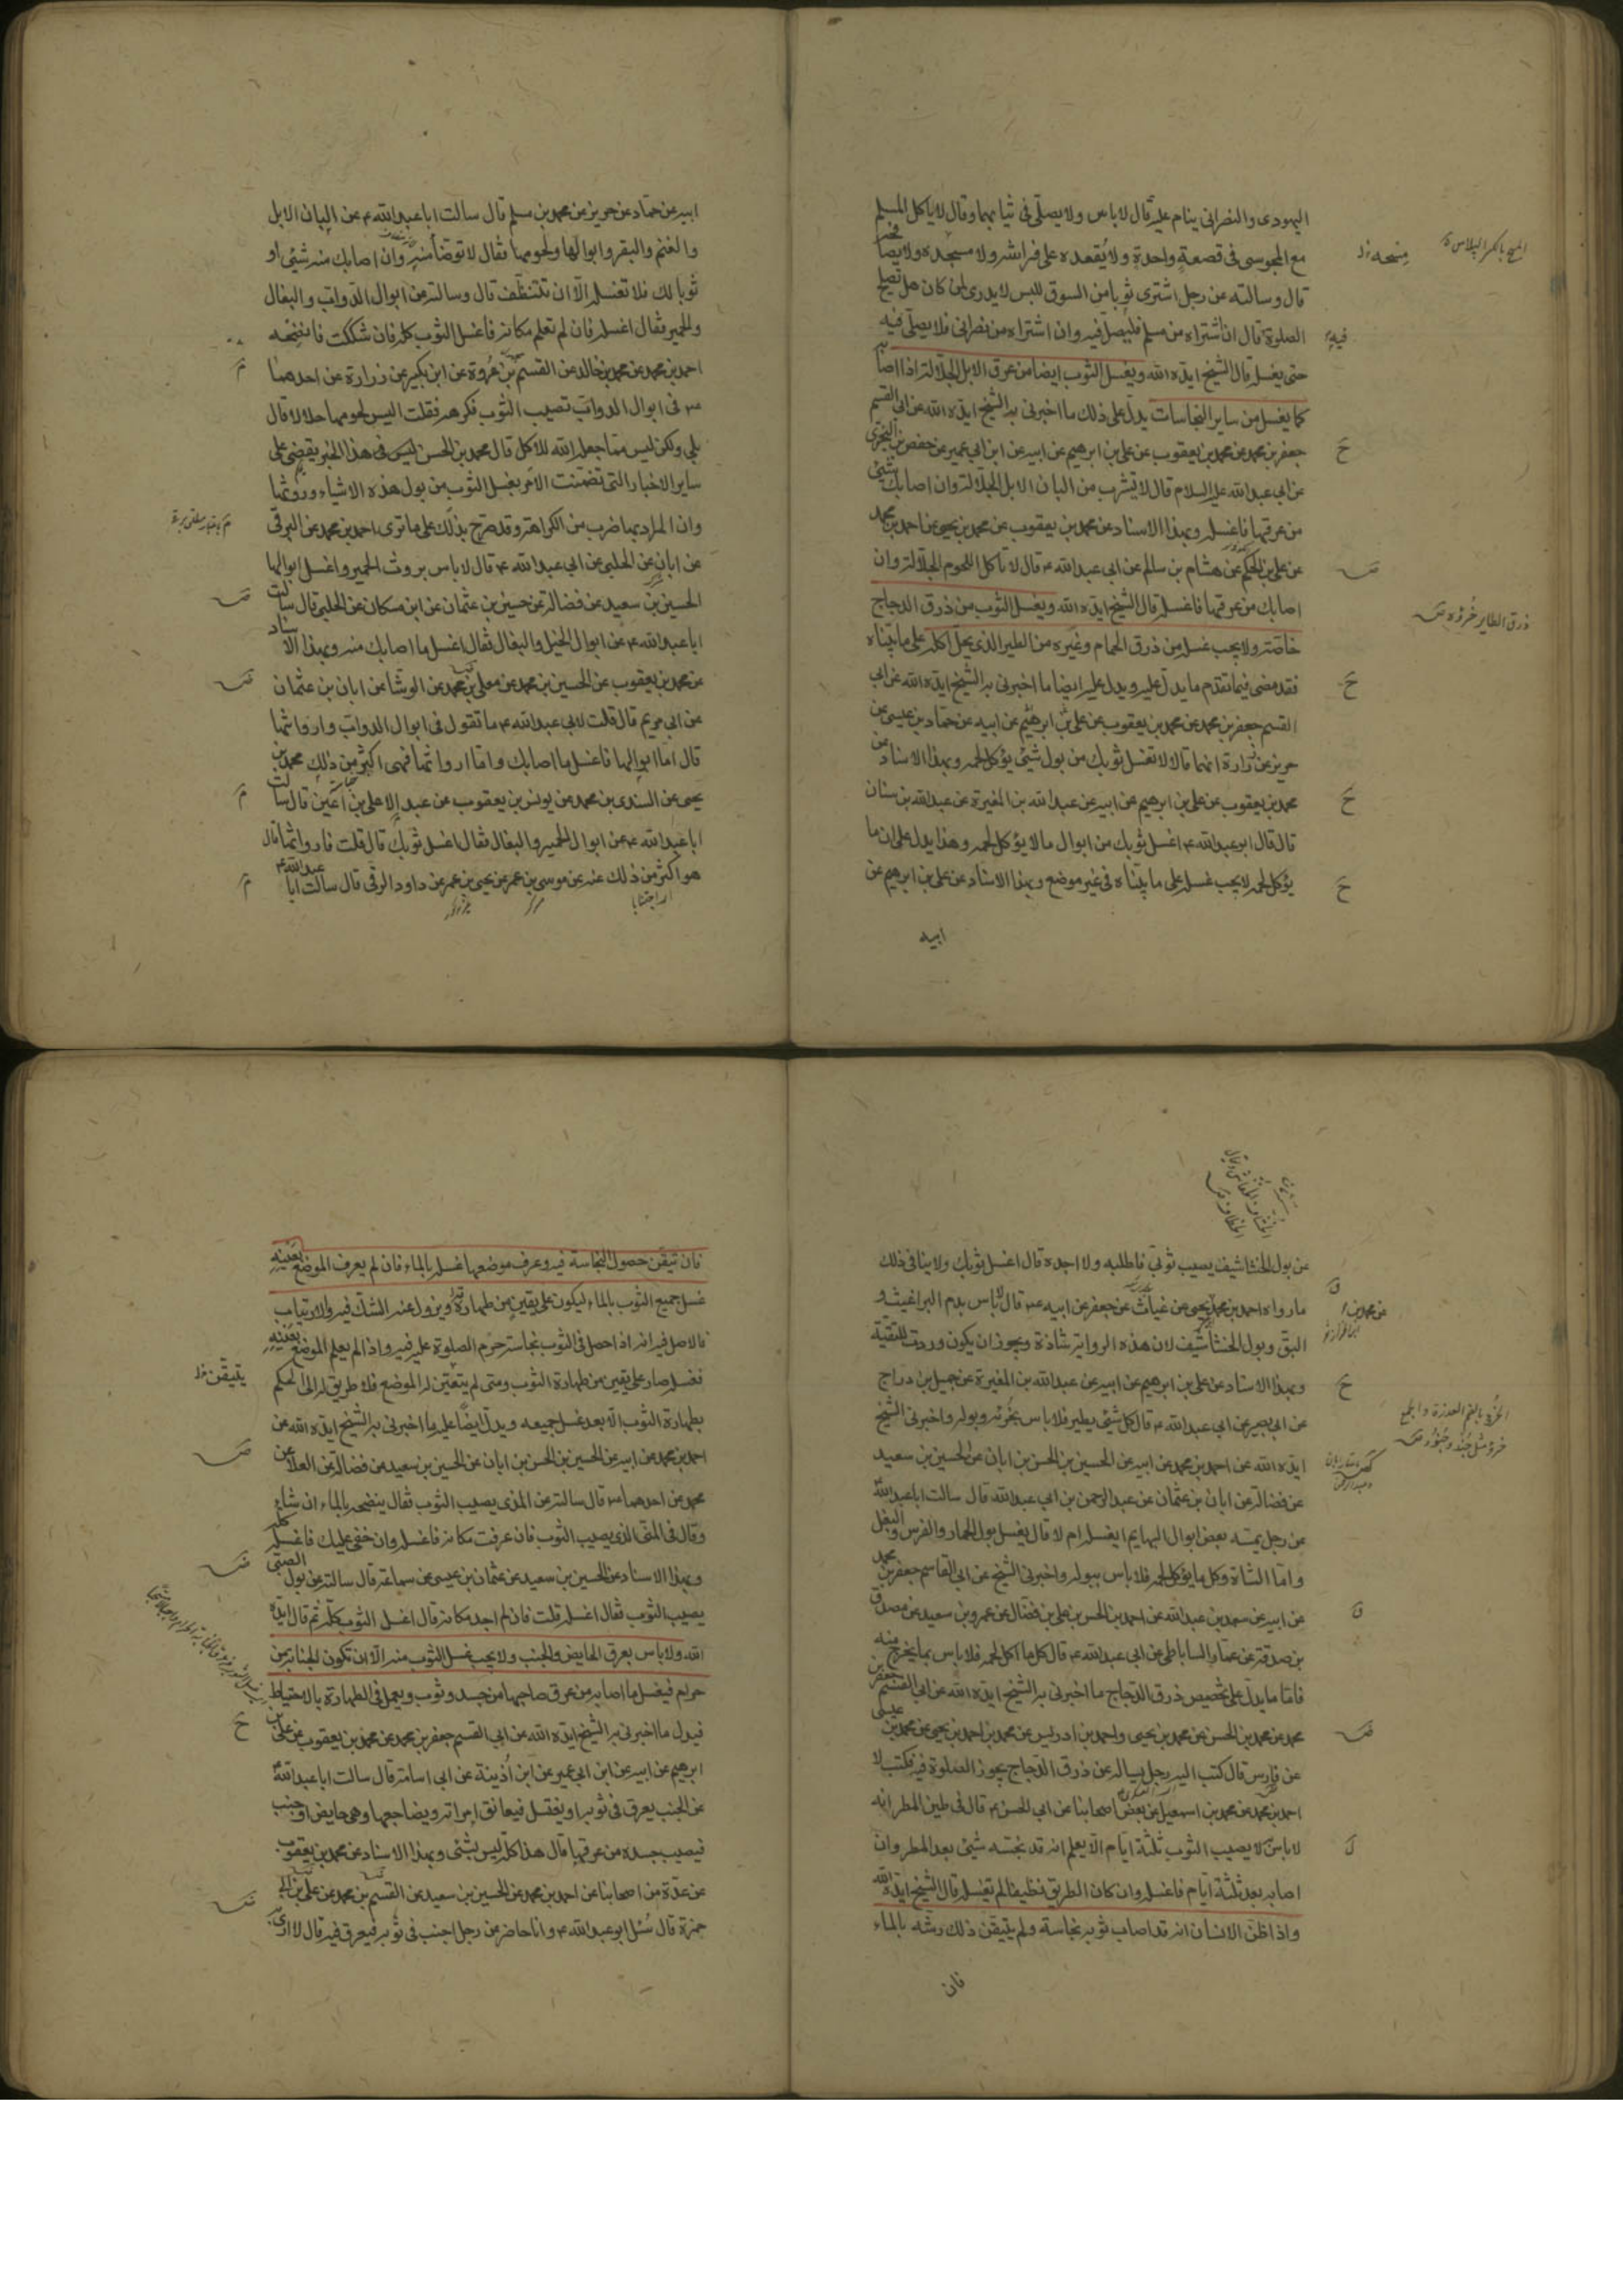 اليهودى والنصرانى ينام عليه قال لاباس ولا يصلى فى ثيابهما وقال لا ياكل المسلم
مع المجوسى فى قصعة واحدة ولا يقعده على فراشه ولا مسجده ولا يصافحه
قال وسالته عن رجل اشترى ثوبا من السوق للبس لا يدرى لمن كان هل تصلح
الصلوة فيه قال ان اشتراه من مسلم فليصل فيه وان اشتراه من نصرانى فلا يصلى فيه
حتى يغسله قال الشيخ ايده الله ويغسل الثوب ايضا من عرق الابل الجلالة اذا اصابه
كما يغسل من ساير النجاسات يدل على ذلك ما اخبرنى به الشيخ ايده الله عن ابى القسم
جعفر بن محمد عن محمد بن يعقوب عن على بن ابرهيم عن ابيه عن ابن ابى عمير عن حفص بن البخترى
عن ابى عبد الله عليه السلام قال لا تشرب من البان الابل الجلالة وان اصابك شئ
من عرقها فاغسله وبهذا الاسناد عن محمد بن يعقوب عن محمد بن يحيى عن احمد بن محمد
عن على بن الحكم عن هشام بن سالم عن ابى عبد الله ع قال لا تاكل اللحوم الجلالة وان
اصابك من عرقها فاغسله قال الشيخ ايده الله ويغسل الثوب من ذرق الدجاج
خاصة ولا يجب غسله من ذرق الحمام وغيره من الطير الذى يحل اكله على ما بيناه
فقد مضى فيما تقدم ما يدل عليه ويدل عليه ايضا ما اخبرنى به الشيخ ايده الله عن ابى
القسم جعفر بن محمد عن محمد بن يعقوب عن على بن ابرهيم عن ابيه عن حماد بن عيسى عن
حريز عن زرارة انهما قالا لا تغسل ثوبك من بول شئ يؤكل لحمه وبهذا الاسناد عن
محمد بن يعقوب عن على بن ابرهيم عن ابيه عن عبد الله بن المغيرة عن عبد الله بن سنان
قال قال ابو عبد الله ع اغسل ثوبك من ابوال ما لا يؤكل لحمه وهذا يدل على ان ما
يؤكل لحمه لا يجب غسله على ما بيناه فى غير موضع وبهذا الاسناد عن على بن ابرهيم عن
ابيه
ذرق الطاير خرؤه
ابيه عن حماد عن حريز عن محمد بن مسلم قال سالت ابا عبد الله ع عن البان الابل
والغنم والبقر وابوالها ولحومها فقال لا توضأ منه وان اصابك منه شئ او
ثوبا لك فلا تغسله الا ان تتنظف قال وسالته عن ابوال الدواب والبغال
والحمير فقال اغسله فان لم تعلم مكانه فاغسل الثوب كله فان شككت فانضحه
احمد بن محمد عن محمد بن خالد عن القسم بن عروة عن ابن بكير عن زرارة عن احدهما
ع فى ابوال الدواب تصيب الثوب فكرهه فقلت اليس لحومها حلالا قال
بلى ولكن ليس مما جعله الله للاكل قال محمد بن الحسن ليس فى هذا الخبر يقضى على
ساير الاخبار التى تضمنت الامر بغسل الثوب من بول هذه الاشياء وروثها
وان المراد بها ضرب من الكراهة وقد صرح بذلك على ما ترى احمد بن محمد عن البرقى
عن ابان عن الحلبى عن ابى عبد الله ع قال لا باس بروث الحمير واغسل ابوالها
الحسين بن سعيد عن فضالة عن حسين بن عثمان عن ابن مسكان عن الحلبى قال سالت
ابا عبد الله ع عن ابوال الخيل والبغال فقال اغسل ما اصابك منه وبهذا الاسناد
عن محمد بن يعقوب عن الحسين بن محمد عن معلى بن محمد عن الوشا عن ابان بن عثمان
عن ابى مريم قال قلت لابى عبد الله ع ما تقول فى ابوال الدواب وارواثها
قال اما ابوالها فاغسل ما اصابك واما ارواثها فهى اكثر من ذلك محمد بن
يحيى عن السندى بن محمد عن يونس بن يعقوب عن عبد الاعلى بن اعين قال سالت
ابا عبد الله ع عن ابوال الحمير والبغال فقال اغسل ثوبك قال قلت فارواثها قال
هو اكثر من ذلك عنه عن موسى بن عمر عن يحيى بن عمر عن داود الرقى قال سالت ابا عبد الله ع
عن بول الخشاشيف يصيب ثوبى فاطلبه ولا اجده قال اغسل ثوبك ولا ينافى ذلك
ما رواه احمد بن محمد عن يحيى عن غياث عن جعفر عن ابيه ع قال لا باس بدم البراغيث و
البق وبول الخشاشيف لان هذه الرواية شاذة ويجوز ان يكون وردت للتقية
وبهذا الاسناد عن على بن ابرهيم عن ابيه عن عبد الله بن المغيرة عن جميل بن دراج
عن ابى بصير عن ابى عبد الله ع قال كل شئ يطير فلا باس بخرئه وبوله واخبرنى الشيخ
ايده الله عن احمد بن محمد عن ابيه عن الحسين بن الحسن بن ابان عن الحسين بن سعيد
عن فضالة عن ابان بن عثمان عن عبد الرحمن بن ابى عبد الله قال سالت ابا عبد الله ع
عن رجل يمسه بعض ابوال البهايم ايغسله ام لا قال يغسل بول الحمار والفرس والبغل
واما الشاة وكل ما يؤكل لحمه فلا باس ببوله واخبرنى الشيخ عن ابى القاسم جعفر بن محمد
عن ابيه عن سعد بن عبد الله عن احمد بن الحسن بن على بن فضال عن عمرو بن سعيد عن مصدق
بن صدقة عن عمار الساباطى عن ابى عبد الله ع قال كل ما اكل لحمه فلا باس بما يخرج منه
فاما ما يدل على تخصيص ذرق الدجاج ما اخبرنى به الشيخ ايده الله عن ابى القسم جعفر بن
محمد عن محمد بن الحسن عن محمد بن يحيى واحمد بن ادريس عن محمد بن احمد بن يحيى عن محمد بن عيسى
عن فارس قال كتب اليه رجل يساله عن ذرق الدجاج يجوز الصلوة فيه فكتب لا
احمد بن محمد عن محمد بن اسمعيل عن بعض اصحابنا عن ابى الحسن ع قال فى طين المطر انه
لا باس لا يصيب الثوب ثلثة ايام الا يعلم انه قد نجسه شئ بعد المطر وان
اصابه بعد ثلثة ايام فاغسله وان كان الطريق نظيفا لم تغسله قال الشيخ ايده الله
واذا ظن الانسان انه قد اصاب ثوبه نجاسة ولم يتيقن ذلك رشه بالماء
فان
فان تيقن حصول النجاسة فيه وعرف موضعها غسله بالماء فان لم يعرف الموضع بعينه
غسل جميع الثوب بالماء ليكون على يقين من طهارته ويزول عنه الشك فيه والارتياب
فالاصل فيه انه اذا حصل فى الثوب نجاسة حرم الصلوة عليه فيه واذا لم يعلم الموضع بعينه
فغسله صار على يقين من طهارة الثوب ومتى لم يتعين له الموضع فلا طريق له الى الحكم
بطهارة الثوب الا بعد غسل جميعه ويدل ايضا عليه ما اخبرنى به الشيخ ايده الله عن
احمد بن محمد عن ابيه عن الحسين بن الحسن بن ابان عن الحسين بن سعيد عن فضالة عن العلا عن
محمد عن احدهما ع قال سالته عن المذى يصيب الثوب فقال ينضحه بالماء ان شاء
وقال فى المنى الذى يصيب الثوب فان عرفت مكانه فاغسله وان خفى عليك فاغسله كله
وبهذا الاسناد عن الحسين بن سعيد عن عثمان بن عيسى عن سماعة قال سالته عن بول الصبى
يصيب الثوب فقال اغسله قلت فان لم اجد مكانه قال اغسل الثوب كله ثم قال ايده
الله ولا باس بعرق الحايض والجنب ولا يجب غسل الثوب منه الا ان تكون الجنابة من
حرام فيغسل ما اصابه من عرق صاحبها من جسد وثوب ويعمل فى الطهارة بالاحتياط
فيدل ما اخبرنى به الشيخ ايده الله عن ابى القسم جعفر بن محمد عن محمد بن يعقوب عن على بن
ابرهيم عن ابيه عن ابن ابى عمير عن ابن اذينة عن ابى اسامة قال سالت ابا عبد الله ع
عن الجنب يعرق فى ثوبه او يغتسل فيعانق امراته ويضاجعها وهى حايض او جنب
فيصيب جسده من عرقها قال هذا كله ليس بشئ وبهذا الاسناد عن محمد بن يعقوب
عن عدة من اصحابنا عن احمد بن محمد عن الحسين بن سعيد عن القسم بن محمد عن على بن ابى
حمزة قال سئل ابو عبد الله ع وانا حاضر عن رجل اجنب فى ثوبه فيعرق فيه قال لا ارى